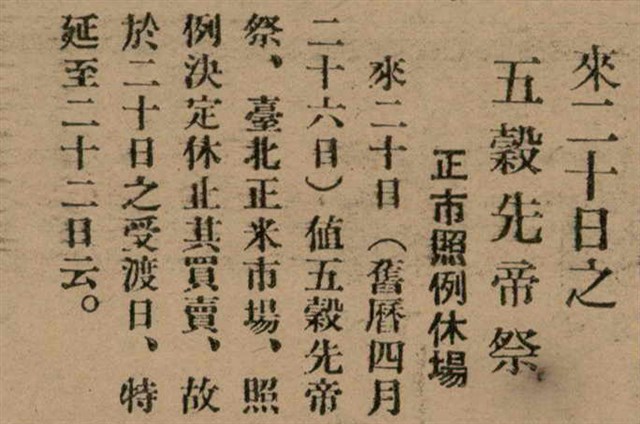 來二十日之
五穀先帝祭
正市照例休場
來二十日（舊曆四月
二十六日）値五穀先帝
祭、臺北正米市場、照
例決定休止其買賣、故
於二十日之受渡日、特
延至二十二日云。